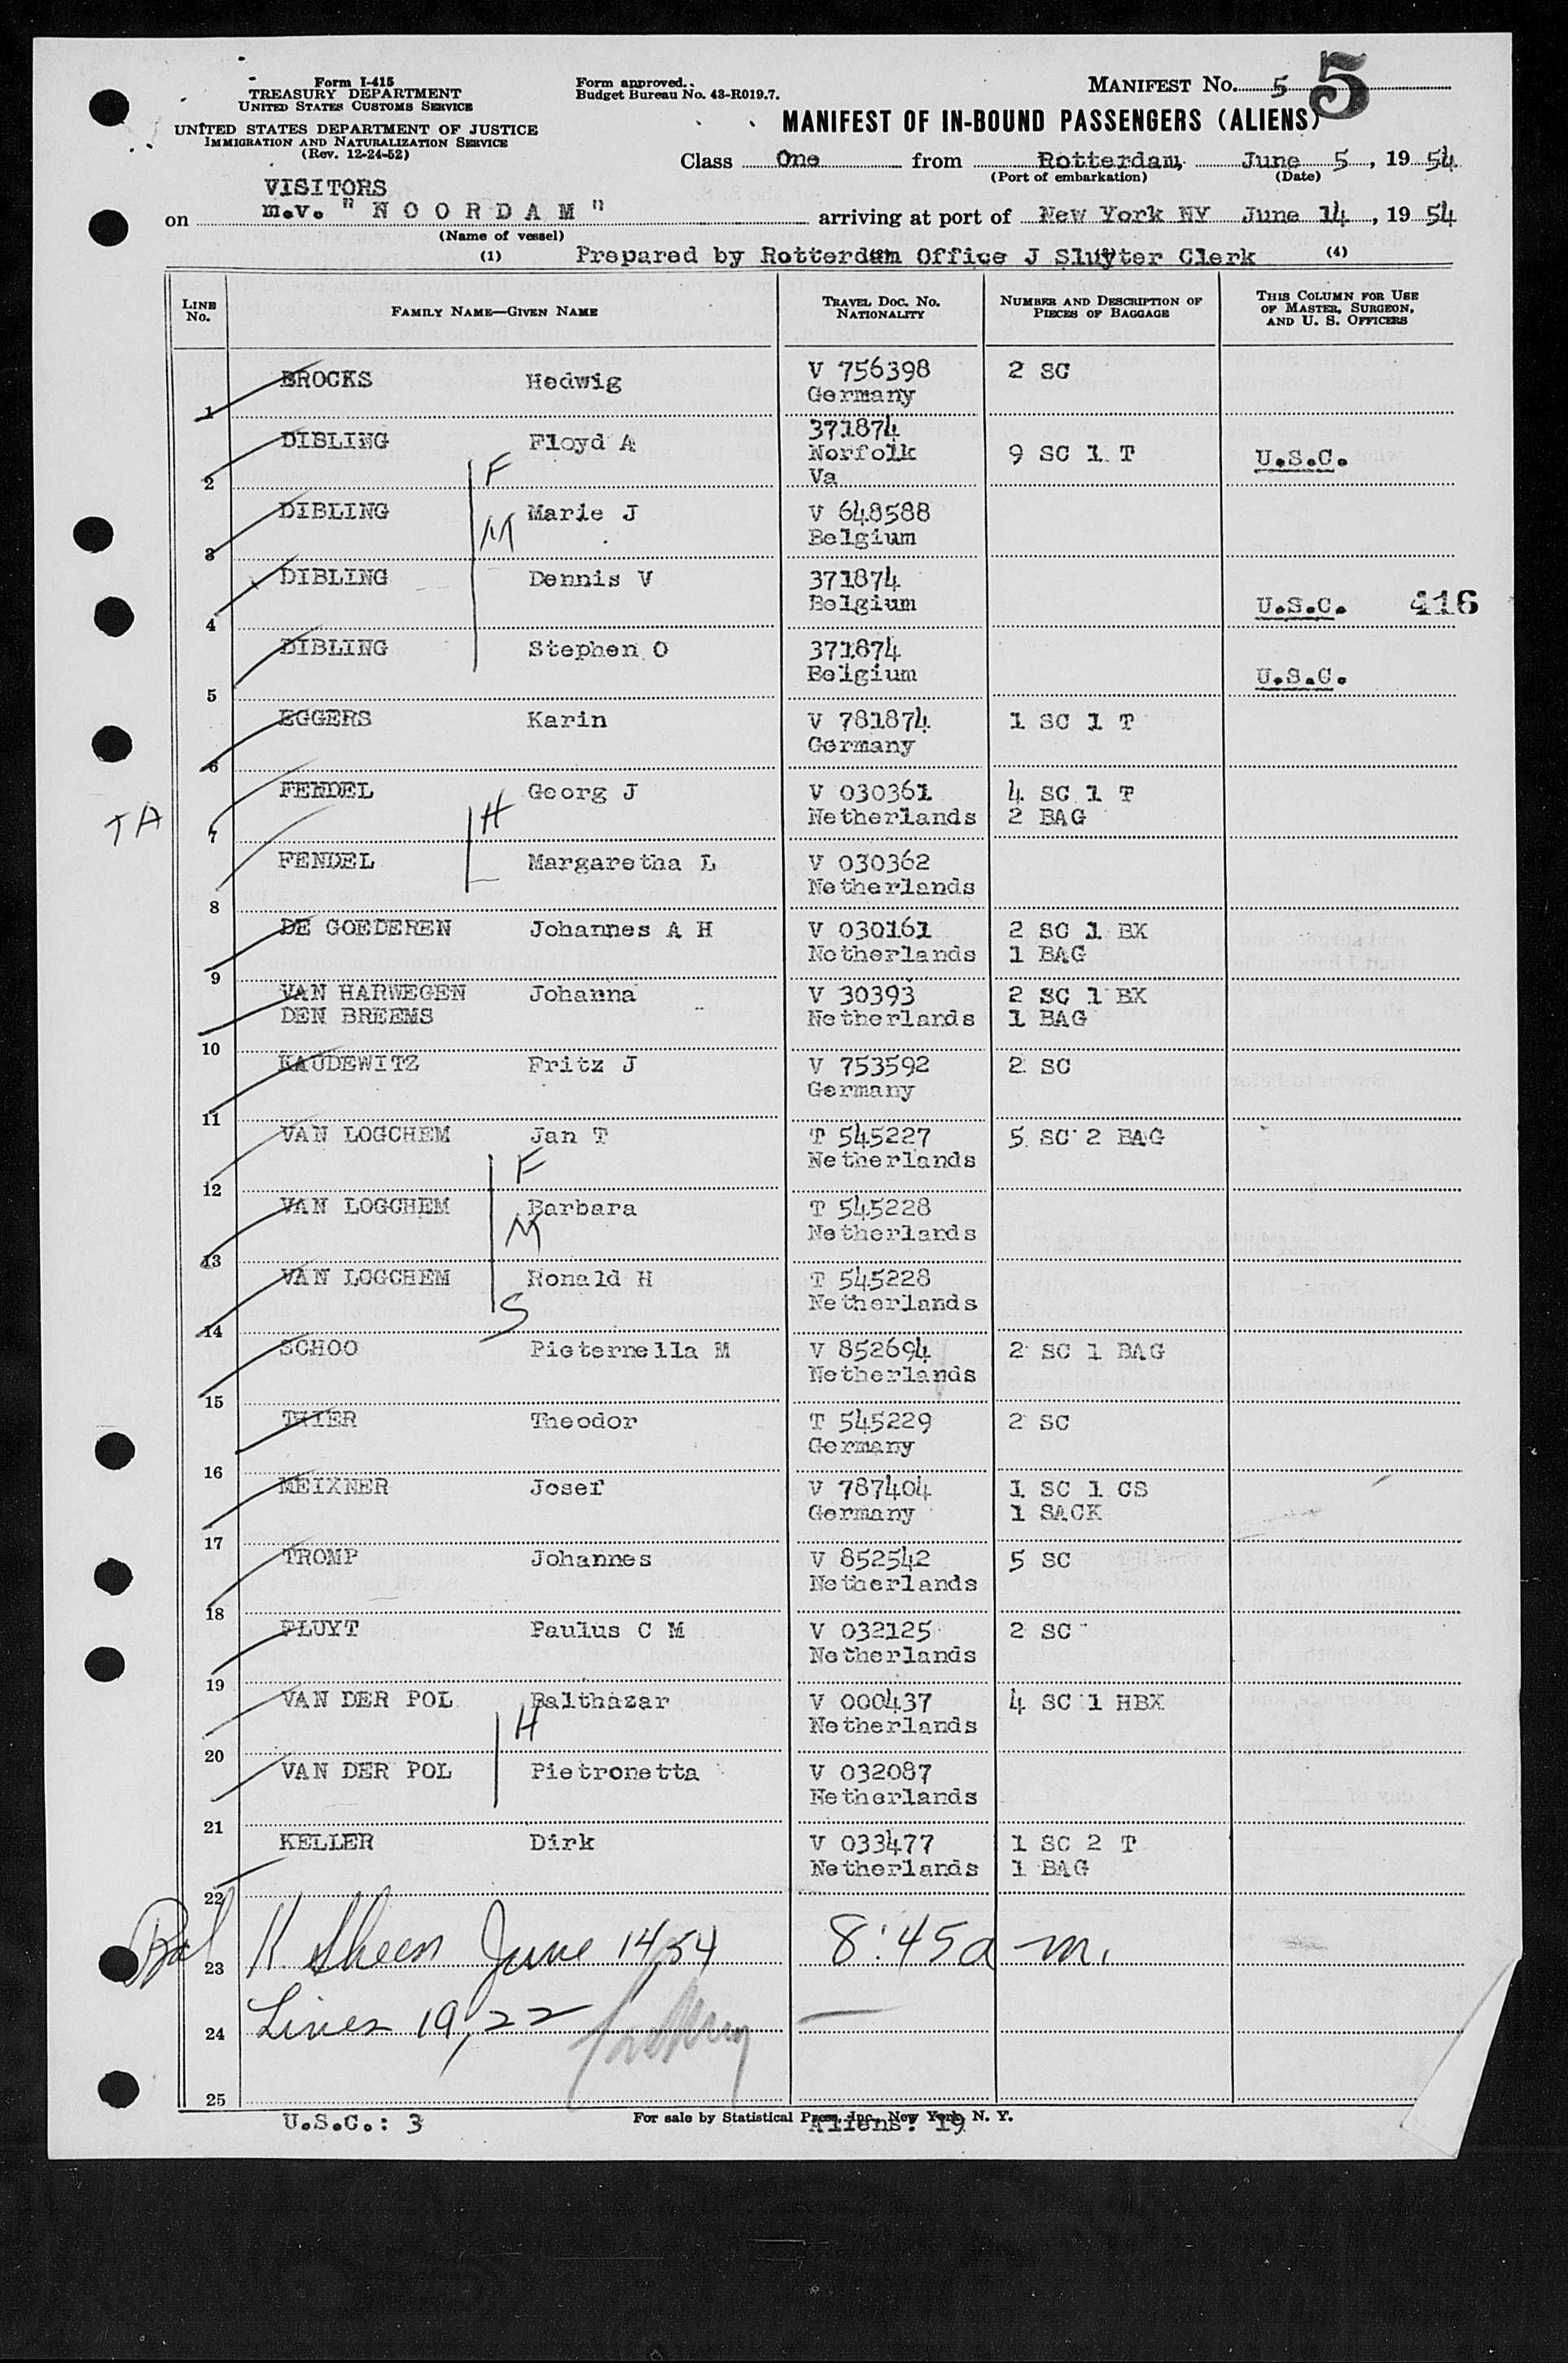 Form I-415
TREASURY DEPARTMENT
UNITED STATES CUSTOMS SERVICE
UNITED STATES DEPARTMENT OF JUSTICE
IMMIGRATION AND NATURALIZATION SERVICE
(Rev. 12-24-52)
Form approved.
Budget Bureau No. 43-R019.7.
MANIFEST No. 5 5
MANIFEST OF IN-BOUND PASSENGERS (ALIENS)
Class One from Rotterdam, June 5, 1954
(Port of embarkation) (Date)
VISITORS
on m.v. "NOORDAM" arriving at port of New York NY June 14, 1954
(Name of vessel)
(1) Prepared by Rotterdam Office J Sluyter Clerk (4)
LINE No. FAMILY NAME—GIVEN NAME TRAVEL DOC. NO. NATIONALITY NUMBER AND DESCRIPTION OF PIECES OF BAGGAGE THIS COLUMN FOR USE OF MASTER, SURGEON, AND U. S. OFFICERS
1 BROCKS Hedwig V 756398 Germany 2 SC
2 DIBLING Floyd A F 371874 Norfolk Va 9 SC 1 T U.S.C.
3 DIBLING Marie J M V 648588 Belgium
4 DIBLING Dennis V 371874 Belgium U.S.C. 416
5 DIBLING Stephen O 371874 Belgium U.S.C.
6 EGGERS Karin V 781874 Germany 1 SC 1 T
TA 7 FENDEL Georg J H V 030361 Netherlands 4 SC 1 T 2 BAG
8 FENDEL Margaretha L V 030362 Netherlands
9 DE GOEDEREN Johannes A H V 030161 Netherlands 2 SC 1 BX 1 BAG
10 VAN HARWEGEN DEN BREEMS Johanna V 30393 Netherlands 2 SC 1 BX 1 BAG
11 KAUDEWITZ Fritz J V 753592 Germany 2 SC
12 VAN LOGCHEM Jan T F T 545227 Netherlands 5 SC 2 BAG
13 VAN LOGCHEM Barbara M T 545228 Netherlands
14 VAN LOGCHEM Ronald H S T 545228 Netherlands
15 SCHOO Pieternella M V 852694 Netherlands 2 SC 1 BAG
16 THIER Theodor T 545229 Germany 2 SC
17 MEIXNER Josef V 787404 Germany 1 SC 1 CS 1 SACK
18 TROMP Johannes V 852542 Netherlands 5 SC
19 PLUYT Paulus C M V 032125 Netherlands 2 SC
20 VAN DER POL Balthazar H V 000437 Netherlands 4 SC 1 HBX
21 VAN DER POL Pietronetta V 032087 Netherlands
22 KELLER Dirk V 033477 Netherlands 1 SC 2 T 1 BAG
23 Bal K Sheen June 14, 54 8:45 a m.
24 Lines 19, 22
25
U.S.C.: 3 For sale by Statistical Press, Inc., New York, N. Y. Aliens: 19